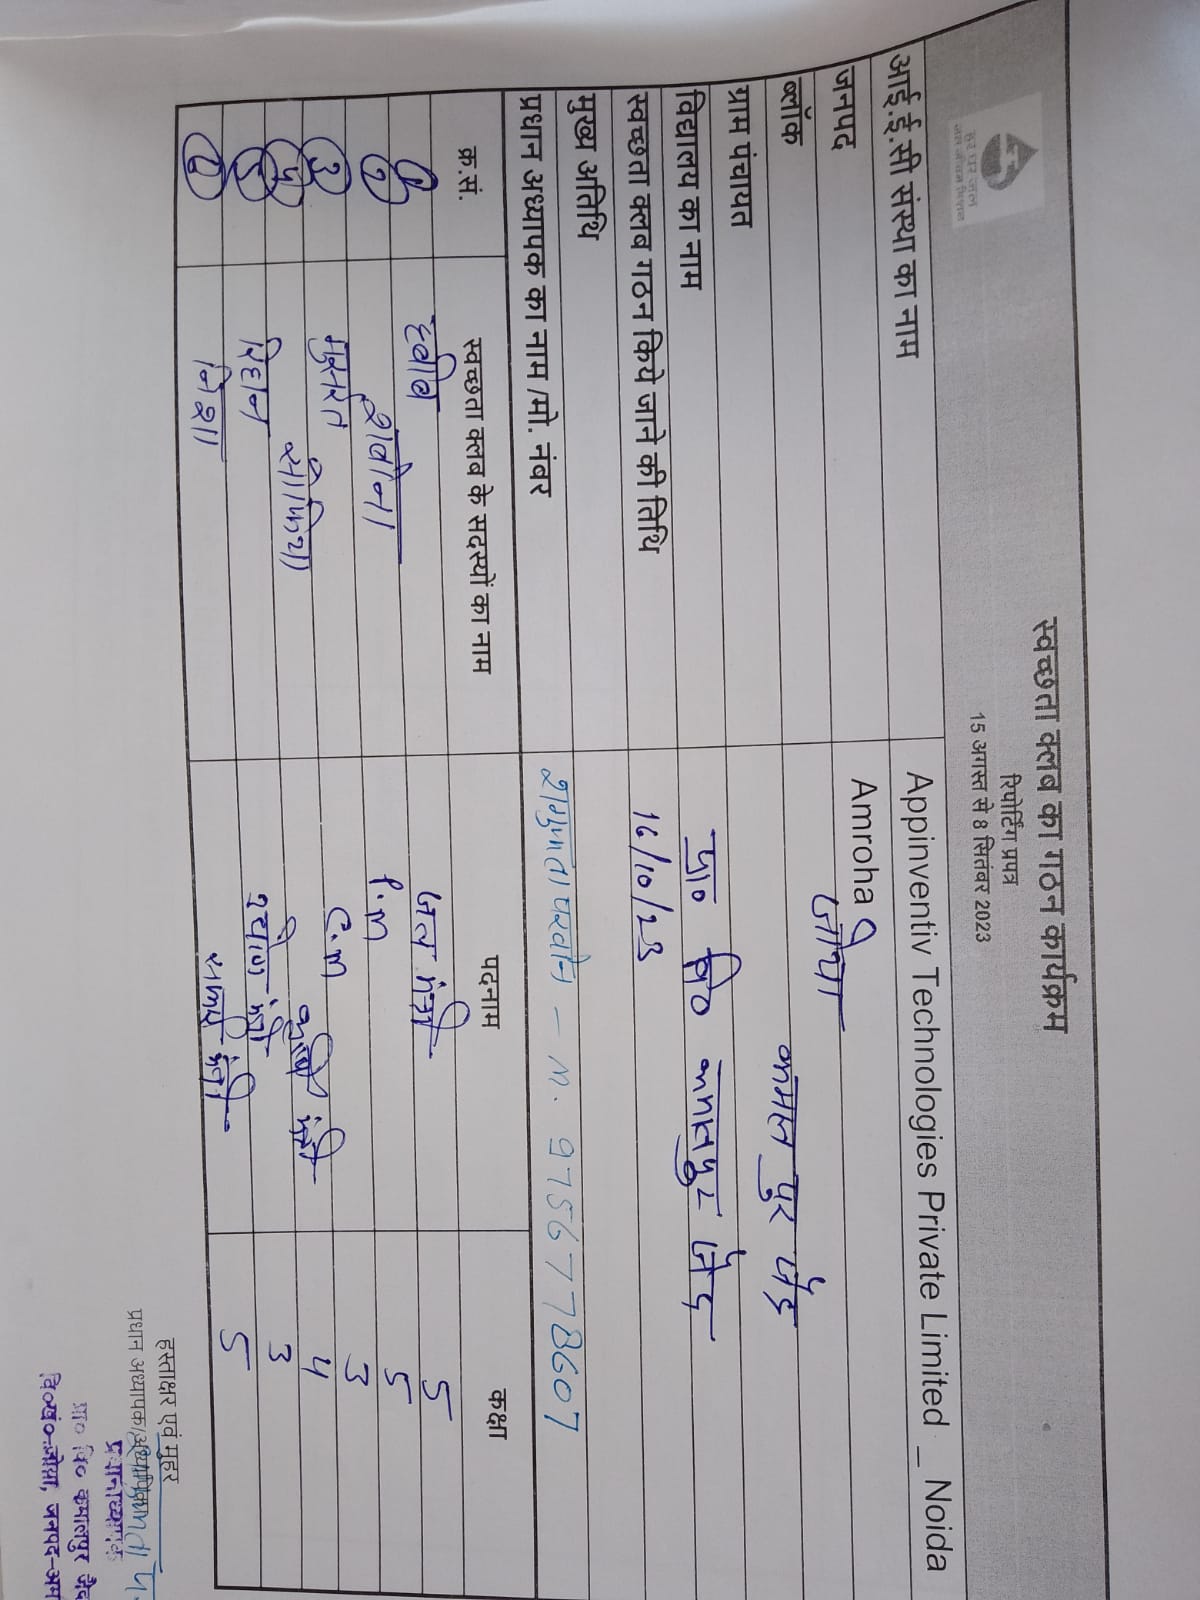 हर घर जल
जल जीवन मिशन
स्वच्छता क्लब का गठन कार्यक्रम
रिपोर्टिंग प्रपत्र
15 अगस्त से 8 सितंबर 2023
आई.ई.सी संस्था का नाम Appinventiv Technologies Private Limited _ Noida
जनपद Amroha
ब्लॉक जोया
ग्राम पंचायत कमाल पुर जैद
विद्यालय का नाम प्रा० वि० कमालपुर जैद
स्वच्छता क्लब गठन किये जाने की तिथि 16/10/23
मुख्य अतिथि
प्रधान अध्यापक का नाम /मो. नंबर - M. 9756778607
क्र.सं. स्वच्छता क्लब के सदस्यों का नाम पदनाम कक्षा
1 जल मंत्री 5
2 P.M 5
3 मुसर्रत C.M 3
4 मंत्री 4
5 मंत्री 3
6 निशा सफाई मंत्री 5
हस्ताक्षर एवं मुहर
प्रधान अध्यापक/
प्रधानाध्यापक
प्रा० वि० कमालपुर जैद
वि०खं०-जोया, जनपद-अम